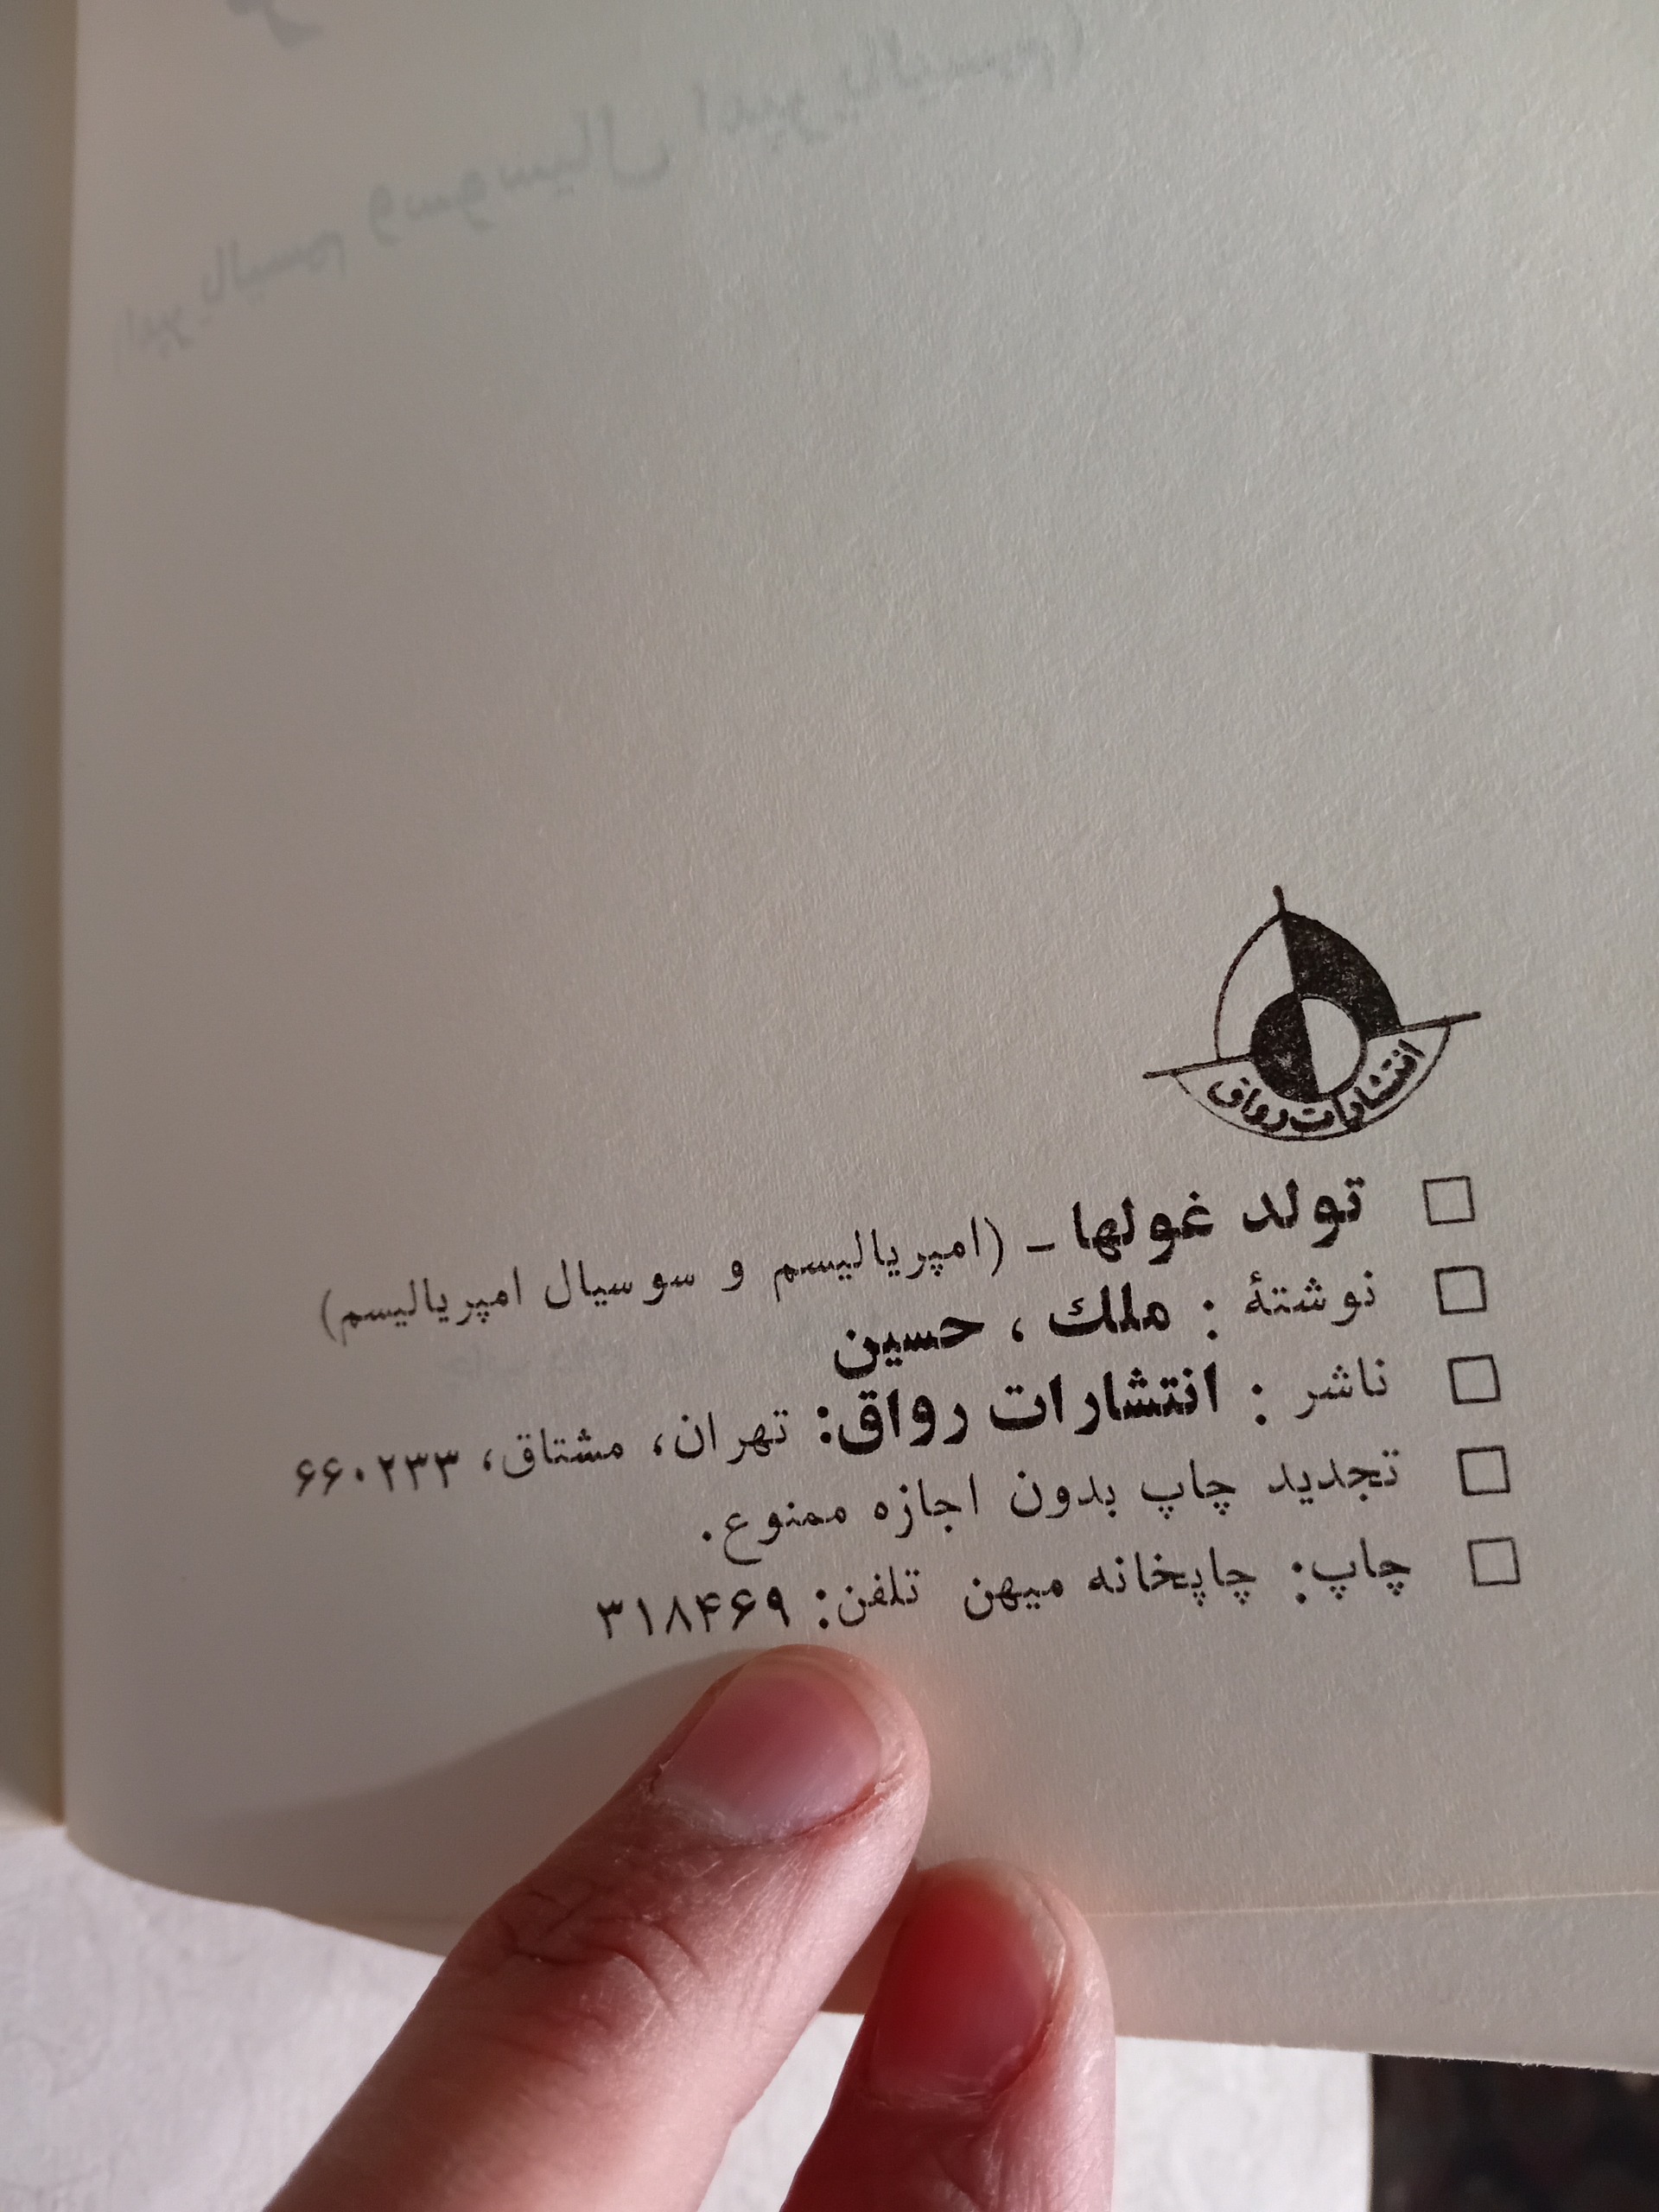 انتشارات رواق
□ تولد غولها ـ (امپریالیسم و سوسیال امپریالیسم)
□ نوشتهٔ : ملك ، حسین
□ ناشر : انتشارات رواق: تهران، مشتاق، ۶۶۰۲۳۳
□ تجدید چاپ بدون اجازه ممنوع.
□ چاپ: چاپخانه میهن تلفن: ۳۱۸۴۶۹